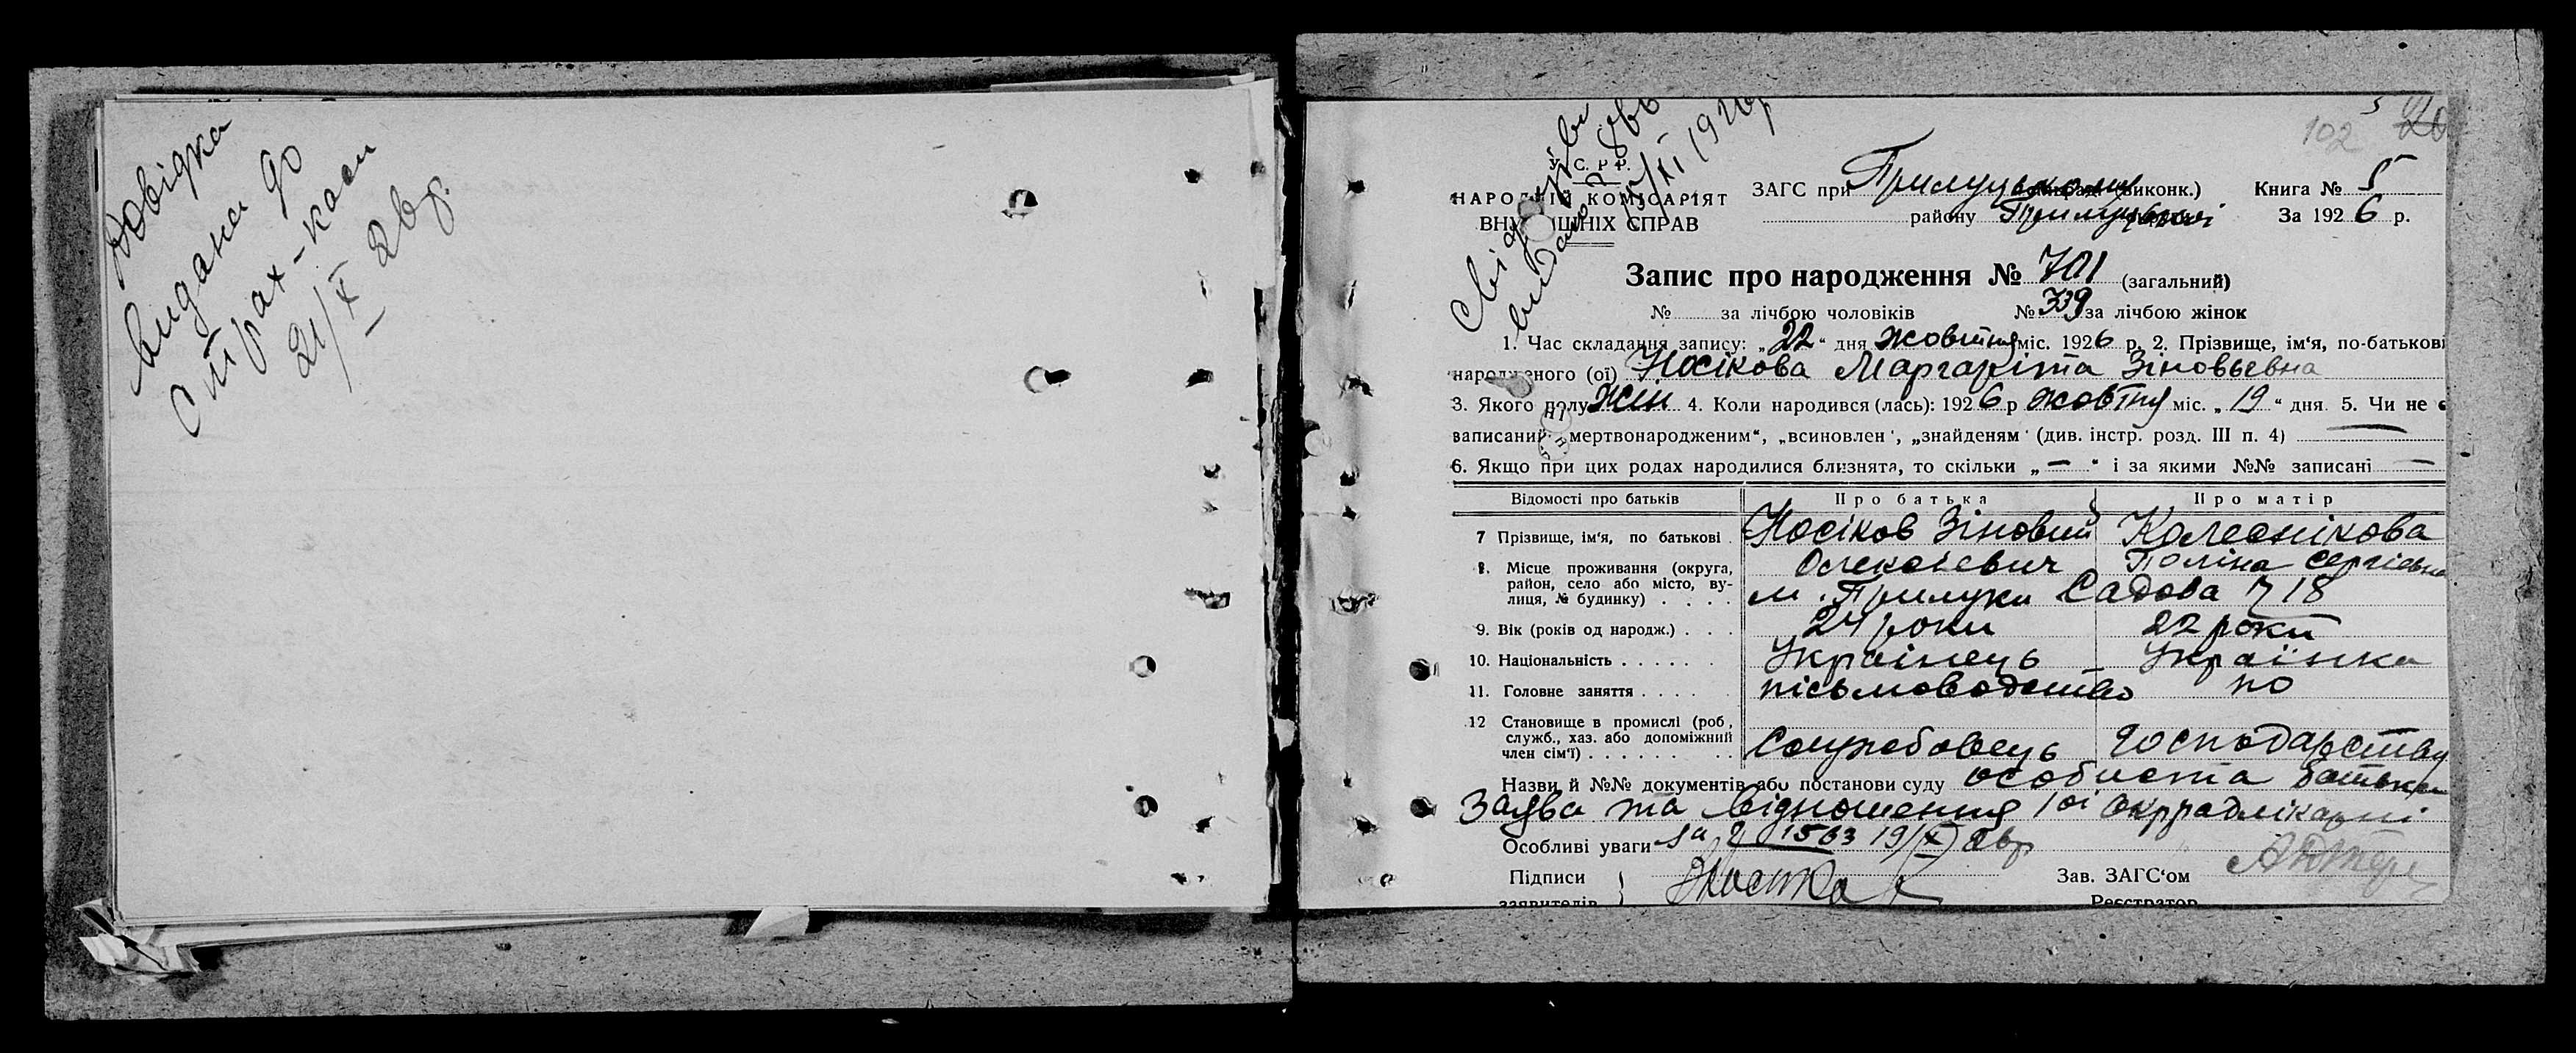 Довідка
видана до
страх-каси
21/X 26р.
102
5
У. С. Р. Р.
НАРОДНІЙ КОМІСАРІЯТ
ВНУТРІШНІХ СПРАВ
Свідоцтво
видано
15/XI 1926р
ЗАГС при Прилуцькому (виконк.)
району Прилуцької
Книга № 5
За 1926 р.
Запис про народження № 701 (загальний)
№ за лічбою чоловіків № 339 за лічбою жінок
1. Час складання запису: „22“ дня жовтня міс. 1926 р. 2. Прізвище, ім‘я, по-батькові
народженого (ої) Носікова Маргаріта Зіновьевна
3. Якого полу жін 4. Коли народився (лась): 1926 р жовтня міс. „19“ дня. 5. Чи не
записаний „мертвонародженим“, „всиновлен“, „знайденям“ (див. інстр. розд. III п. 4) —
6. Якщо при цих родах народилися близнята, то скільки „—“ і за якими №№ записані —
Відомості про батьків Про батька Про матір
7 Прізвище, ім‘я, по батькові . Носіков Зіновий Колеснікова
Олексієвич Поліна Сергієвна
8. Місце проживання (округа,
район, село або місто, ву-
лиця, № будинку) . . . . м. Прилуки Садова № 18
9. Вік (років од народж.) . . . 24 роки 22 роки
10. Національність . . . . . . Українець Українка
11. Головне заняття . . . . . пісьмоводство по
12 Становище в промислі (роб,
служб., хаз. або допоміжний
член сім‘ї) . . . . . . . . Совробовець господарству
Назви й №№ документів або постанови суду особиста батька
Заява та відношення 1ої окррадлікарні
Особливі уваги за № 1563 19/X 26р
Підписи
заявителів
Зав. ЗАГС‘ом
Реєстратор